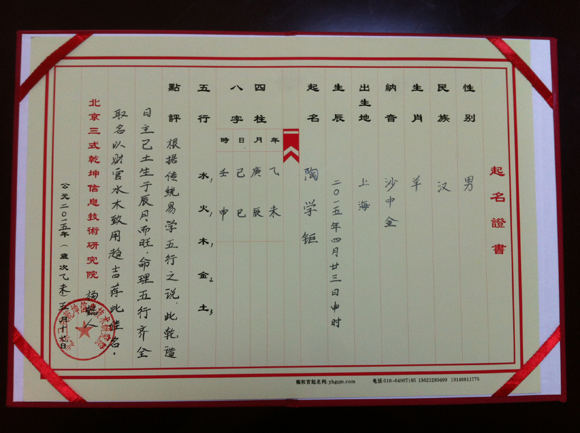 起名證書
性別 男
民族 汉
生肖 羊
納音 沙中金
出生地 上海
生辰 二〇一五年四月廿三日申时
起名 陶学钜
四柱 年 月 日 時
八字 乙未 庚辰 己巳 壬申
五行 水1 火1 木1 金2 土3
點評 根据传统易学五行之说,此乾造
日主己土生于辰月而旺,命理五行齐全
取名以财官水木致用趋吉荐此佳名。
北京三式乾坤信息技術研究院
公元二〇一五年(歲次乙未)五月十七日
電話:010-64997185